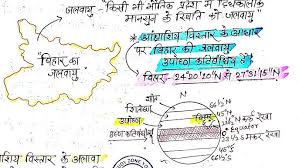 जलवायु - किसी भी भौगिक प्रदेश में दिर्घकालिक
मानसून के स्थिति को जलवायु
"बिहार का
जलवायु"
* अक्षांशीय विस्तार के आधार
पर बिहार की जलवायु
उपोष्ण कटिबंधीय है
बिहार - 24°20'10" N से 27°31'15" N
शीत
66½°N
उपोष्ण
बिहार
23½°N कर्क रेखा
उष्ण कटिबंधीय
0° Equator
23½°S मकर रेखा
66½°S
शीत ZONE
विस्तार के अलावा